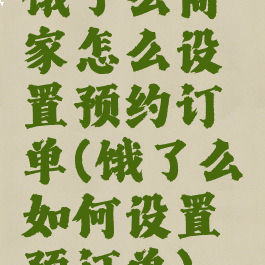 饿了么商
家怎么设
置预约订
单(饿了么
如何设置
预订单)